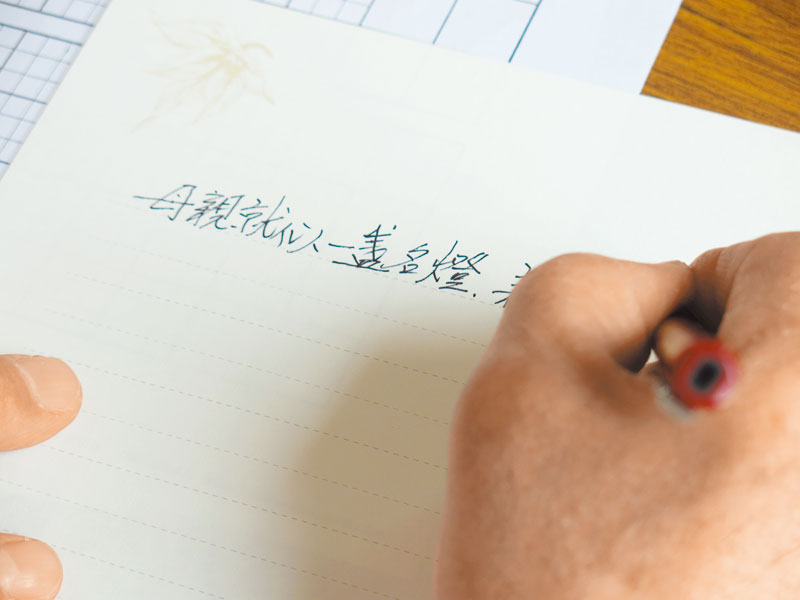 母親就似一盞名燈.